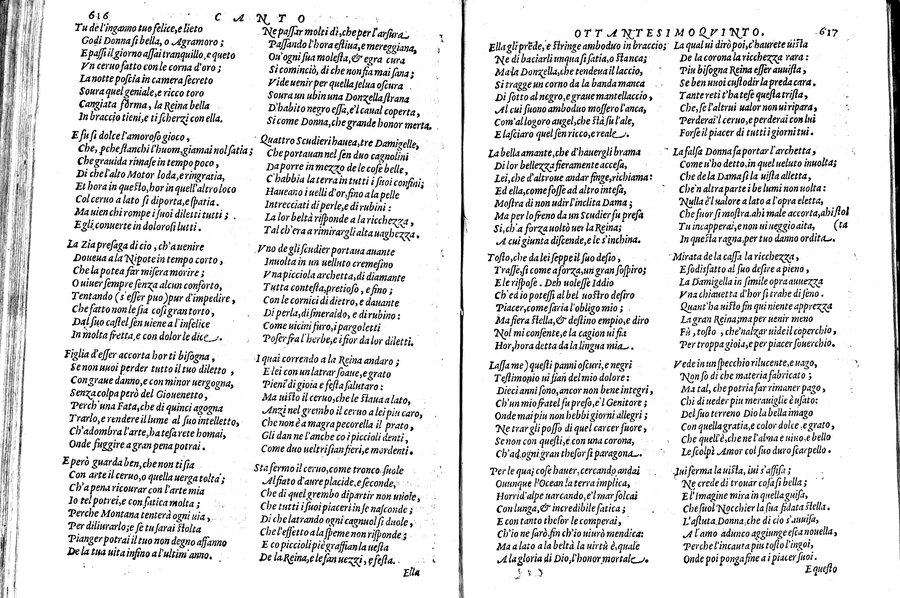 616 CANTO
Tu de l'inganno tuo felice, e lieto
Godi Donna si bella, o Agramoro;
E passi il giorno assai tranquillo, e queto
Vn ceruo fatto con le corna d'oro;
La notte poscia in camera secreto
Soura quel geniale, e ricco toro
Cangiata forma, la Reina bella
In braccio tieni, e ti scherzi con ella.
E fu si dolce l'amoroso gioco,
Che, pche stanchi l'huom, giamai nol satia;
Che grauida rimase in tempo poco,
Di che l'alto Motor loda, e ringratia,
Et hora in questo, hor in quell'altro loco
Col ceruo a lato si diporta, e spatia.
Ma vien chi rompe i suoi diletti tutti;
E gli conuerte in dolorosi lutti.
La Zia presaga di cio, ch'a uenire
Doueua a la Nipote in tempo corto,
Che la potea far misera morire;
O uiuer sempre senza alcun conforto,
Tentando (s'esser puo) pur d'impedire,
Che fatto non le sia cosi gran torto,
Dal suo castel sen uiene a l'infelice
In molta fretta, e con dolor le dice.
Figlia d'esser accorta hor ti bisogna,
Se non uuoi perder tutto il tuo diletto,
Con graue danno, e con minor uergogna,
Senza colpa però del Giouenetto,
Perch'una Fata, che di quinci agogna
Trarlo, e rendere il lume al suo intelletto,
Ch'adombra l'arte, ha tesa rete homai,
Onde fuggire a gran pena potrai.
E però guarda ben, che non ti sia
Con arte il ceruo, o quella uerga tolta;
Ch'a pena ricourar con l'arte mia
Io tel potrei, e con fatica molta;
Perche Montana tenterà ogni uia,
Per diliurarlo; e se tu sarai stolta
Pianger potrai il tuo non degno affanno
De la tua uita infino a l'ultim'anno.
Ne passaro molti dì, che per l'arsura
Passando l'hora estiua, e mereggiana,
Ou'ogni sua molesta, & egra cura
Si cominciò, di che non fia mai sana;
Vide uenir per quella selua oscura
Soura un ubin una Donzella strana
D'habito negro essa, e'l caual coperta,
Si come Donna, che grande honor merta.
Quattro Scudieri hauea, tre Damigelle,
Che portauan nel sen duo cagnolini
Da porre in mezzo de le cose belle,
C'habbia la terra in tutti i suoi confini;
Haueano i uelli d'or, fino a la pelle
Intrecciati di perle, e di rubini:
La lor beltà risponde a la ricchezza,
Tal ch'era a rimirargli alta uaghezza.
Vno de gli scudier portaua auante
Inuolta in un uelluto cremesino
Vna picciola archetta, di diamante
Tutta contesta, pretioso, e fino;
Con le cornici di dietro, e dauante
Di perla, di smeraldo, e di rubino:
Come uicini furo, i pargoletti
Poser fra l'herbe, e i fior da lor diletti.
I quai correndo a la Reina andaro;
E lei con un latrar soaue, e grato
Pieni di gioia e festa salutaro:
Ma uisto il ceruo, che le staua a lato,
Anzi nel grembo il ceruo a lei piu caro,
Che non è a magra pecorella il prato,
Gli dan ne l'anche co i piccioli denti,
Come duo ueltri san fieri, e mordenti.
Sta fermo il ceruo, come tronco suole
Al fiato d'aure placide, e seconde,
Che di quel grembo dipartir non uuole,
Che tutti i suoi piaceri in se nasconde;
Di che latrando ogni cagnuol si duole,
Che l'effetto a la speme non risponde;
E co piccioli piè graffian la uesta
De la Reina, e le fan uezzi, e festa.
Ella
OTTANTESIMOQVINTO. 617
Ella gli prēde, e stringe amboduo in braccio;
Ne di baciarli unqua si satia, o stanca;
Ma la Donzella, che tendeua il laccio,
Si tragge un corno da la banda manca
Di sotto al negro, e graue mantellaccio,
Al cui suono amboduo mossero l'anca,
Com'al logoro augel, che stà su l'ale,
E lasciaro quel sen ricco, e reale.
La bella amante, che d'hauergli brama
Di lor bellezza fieramente accesa,
Lei, che d'altroue andar finge, richiama:
Ed ella, come fosse ad altro intesa,
Mostra di non udir l'inclita Dama;
Ma per lo freno da un Scudier fu presa
Si, ch'a forza uoltò uer la Reina;
A cui giunta discende, e le s'inchina.
Tosto, che da lei seppe il suo desio,
Trasse, si come a forza, un gran sospiro;
E le rispose. Deh uolesse Iddio
Ch'ed io potessi al bel uostro desiro
Piacer, come saria l'obligo mio;
Ma fiera stella, & destino empio, e diro
Nol mi consente, e la cagion ui fia
Hor, hora detta da la lingua mia.
Lassa me) questi panni oscuri, e negri
Testimonio ui sian del mio dolore:
Dieci anni sono, ancor non bene integri,
Ch'un mio fratel fu preso, e'l Genitore;
Onde mai piu non hebbi giorni allegri;
Ne trar gli posso di quel carcer fuore,
Se non con questi, e con una corona,
Ch'ad ogni gran thesor si paragona.
Per le quai cose hauer, cercando andai
Ouunque l'Ocean la terra implica,
Horrid'alpe uarcando, e'l mar solcai
Con lunga, & incredibile fatica;
E con tanto thesor le comperai,
Ch'io ne sarò fin ch'io uiurò mendica:
Ma a lato a la beltà la uirtù è, quale
A la gloria di Dio, l'honor mortale.
La qual ui dirò poi, c'haurete uista
De la corona la ricchezza rara:
Piu bisogna Reina esser auuista,
Se ben uuoi custodir la preda cara.
Tante reti t'ha tese questa trista,
Che, se l'altrui ualor non ui ripara,
Perderai'l ceruo, e perderai con lui
Forse il piacer di tutti i giorni tui.
La falsa Donna fa portar l'archetta,
Come u'ho detto, in quel ueluto inuolta;
Che de la Dama si la uista alletta,
Che'n altra parte i be lumi non uolta:
Nulla è'l ualore a lato a l'opra eletta,
Che fuor si mostra. ahi male accorta, ahi stol
Tu incapperai, e non ui ueggio aita, (ta
In questa ragna, per tuo danno ordita.
Mirata de la cassa la ricchezza,
E sodisfatto al suo desire a pieno,
La Damigella in simile opra auuezza
Vna chiauetta d'hor si trahe di seno.
Quant'ha uisto fin qui niente apprezza
La gran Reina; ma per uenir meno
Fù, tosto, che'nalzar uide il coperchio,
Per troppa gioia, e per piacer souerchio.
Vede in un specchio rilucente, e uago,
Non so di che materia fabricato;
Ma tal, che potria far rimaner pago,
Chi di ueder piu merauiglie è usato:
Del suo terreno Dio la bella imago
Con quella gratia, e color dolce, e grato,
Che quell'è, che ne l'alma e uiuo, e bello
Le scolpì Amor col suo duro scarpello.
Iui ferma la uista, iui s'affisa;
Ne crede di trouar cosa si bella;
E l'imagine mira in quella guisa,
Che suol Nocchier la sua fidata stella.
L'astuta Donna, che di cio s'auuisa,
A l'amo adunco aggiunge esca nouella,
Perche l'incauta piu tosto l'ingoi,
Onde poi ponga fine a i piacer suoi.
E questo